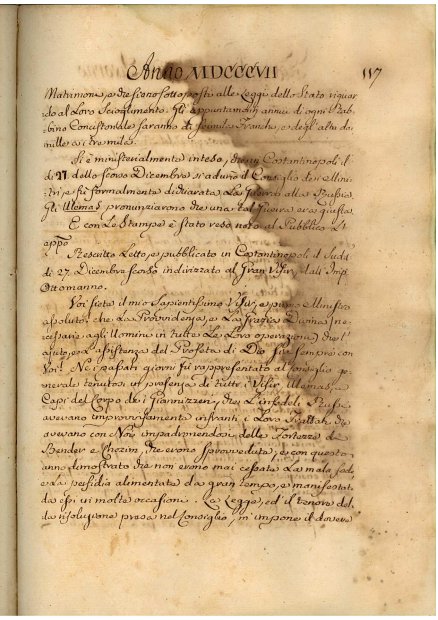 Anno MDCCCVII
117
Matrimonj, e che siano sottoposti alle Leggi dello Stato riguar
do al Loro Scioglimento. Gli appuntamenti annui di ogni Rab
bino Concistoriale saranno di seimila Franchi, e degl'altri da
mille a tremila.
Si è ministerialmente inteso, che in Costantinopoli il
dì 27 dello scorso Dicembre si adunò il Consiglio dei Minis
tri e fù formalmente dichiarata La Guerra alla Russia.
Gli Ulemas pronunziarono che una tal Guerra era giusta.
E con Le Stampe è stato reso noto al Pubblico L'
appo
Rescritto Letto, e pubblicato in Costantinopoli il Sud
dì 27. Dicembre scorso indirizzato al Gran Visir dall'Imp
Ottomanno.
Voi siete il mio Sapientissimo Visir, e primo Ministro
assoluto: che La Providenza, e La Grazia Divina (ne
cessarie agli Uomini in tutte Le Loro operazioni) che L'
ajuto, e L'assistenza del Profeta di Dio sia sempre con
Voi! Ne i passati giorni fù rappresentato al Consiglio ge
nerale tenutosi in presenza di tutti i Visir, Ulemas, e
Capi del Corpo de i Giannizzeri, che L'infedeli Russi
avevano improvvisamente infranti i Loro Trattati, che
avevano con Noi impadronendosi delle Fortezze di
Bender e Chozim, che erono sprovvedute, e con questo
anno dimostrato che non erono mai cessate La mala fede,
e La perfidia alimentata da gran tempo, e manifestat
da essi in molte occasioni. La Legge, ed il tenore del
la risoluzione presa nel Consiglio, m'impone il dovere